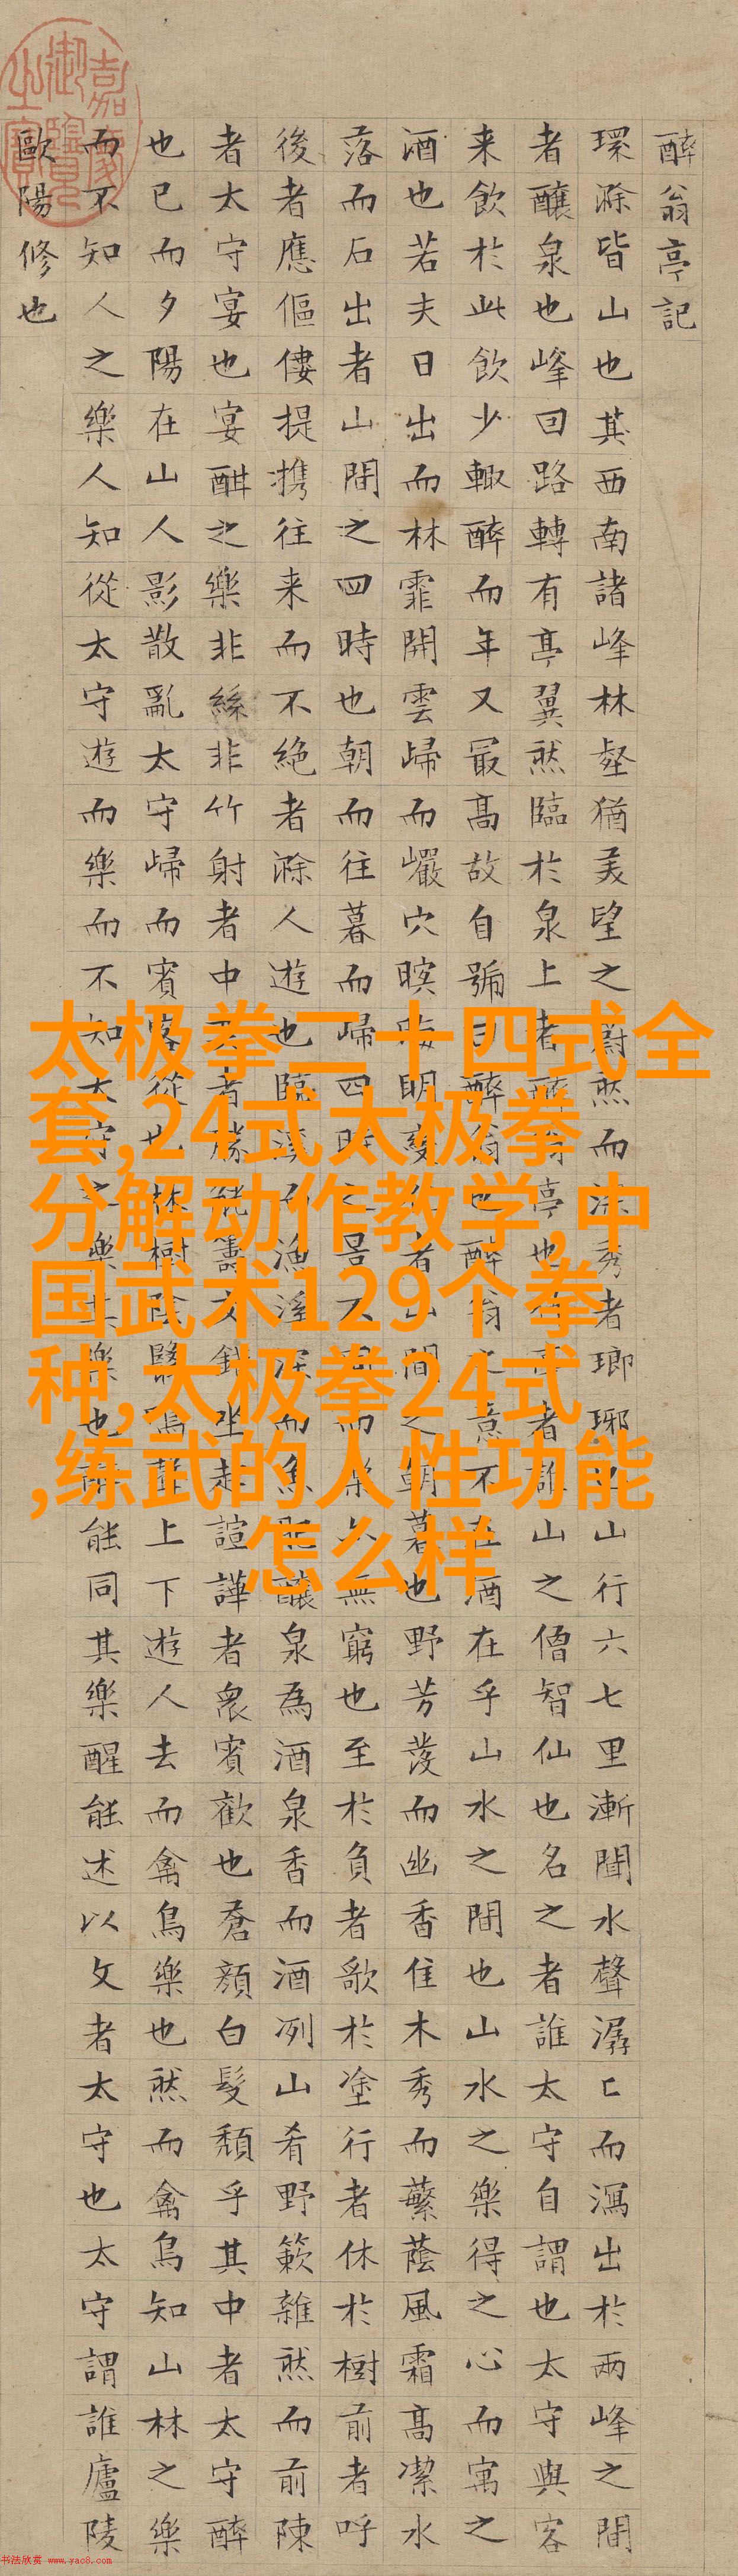 醉翁亭記
環滁皆山也其西南諸峰林壑猶美望之蔚然而深秀者瑯琊也山行六七里漸聞水聲潺〻而瀉出於兩峰之間
者釀泉也峰回路轉有亭翼然臨於泉上者醉翁亭也作亭者誰山之僧智仙也名之者誰太守自謂也太守與客
来飲於此飲少輒醉而年又最高故自號曰醉翁也醉翁之意不在酒在乎山水之間也山水之樂得之心而寓之
酒也若夫日出而林霏開雲歸而巖穴暝晦明變化者山間之朝暮也野芳發而幽香佳木秀而蘩蔭風霜高潔水
落而石出者山間之四時也朝而往暮而歸四時之景不同而樂亦無窮也至於負者歌於塗行者休於樹前者呼
後者應傴僂提携往来而不絶者滁人遊也臨溪而漁溪深而魚肥釀泉為酒泉香而酒冽山肴野簌雜然而前陳
者太守宴也宴酣之樂非絲非竹射者中奕者勝觥籌交錯坐起諠譁者衆賓歡也蒼顔白髮頹乎其中者太守醉
也已而夕陽在山人影散亂太守歸而賓客從也林樹陰翳鳴聲上下遊人去而禽鳥樂也然而禽鳥知山林之樂
而不知人之樂人知從太守遊而樂而不知太守之樂其樂也醉能同其樂醒能述以文者太守也太守謂誰廬陵
歐陽修也
嘉慶御覽之寶
太极拳二十四式全
套,24式太极拳
分解动作教学,中
国武术129个拳
种,太极拳24式
,练武的人性功能
怎么样
书法欣赏 www.yac8.com